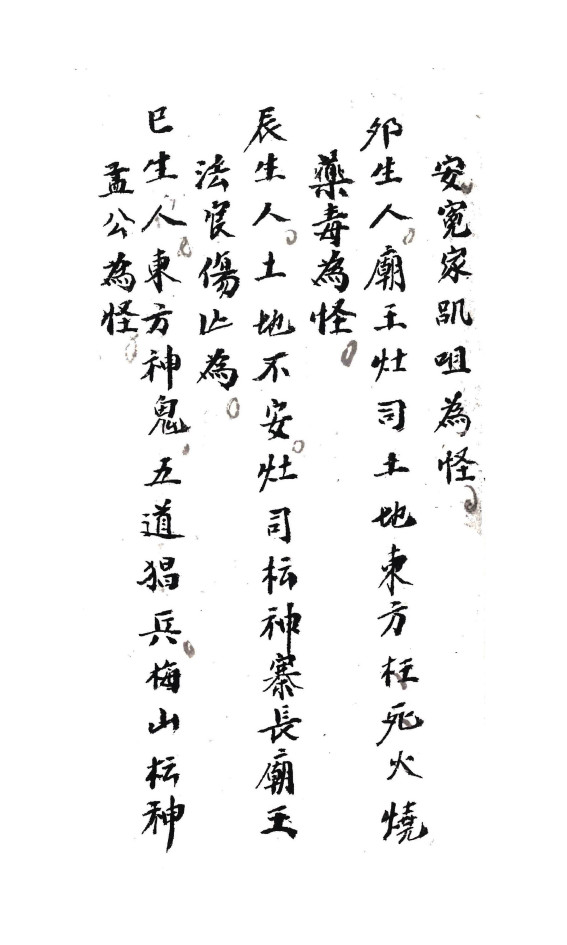 安冤家咒咀為怪
夘生人廟王灶司土地東方枉死火燒
藥毒為怪
辰生人土地不安灶司枟神寨長廟王
法官傷亡為
巳生人東方神鬼五道猖兵梅山枟神
孟公為怪